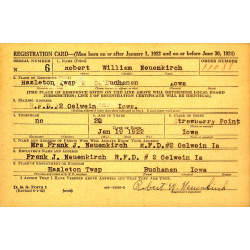 REGISTRATION CARD—(Men born on or after January 1, 1922 and on or before June 30, 1924)
SERIAL NUMBER
1. NAME (Print)
ORDER NUMBER
N 6 Robert William Neuenkirch
2. PLACE OF RESIDENCE (Print)
Hazleton Twsp Buchanan Iowa
(THE PLACE OF RESIDENCE GIVEN ON LINE 2 ABOVE WILL DETERMINE LOCAL BOARD
JURISDICTION; LINE 2 OF REGISTRATION CERTIFICATE WILL BE IDENTICAL)
3. MAILING ADDRESS
R.F.D.#2 Oelwein Iowa
4. TELEPHONE
5. AGE IN YEARS
6. PLACE OF BIRTH
no 20 Strawberry Point
DATE OF BIRTH
Jan 19 1922 Iowa
7. NAME AND ADDRESS OF PERSON WHO WILL ALWAYS KNOW YOUR ADDRESS
Mrs Frank J. Neuenkirch R.F.D #2 Oelwein Ia
8. EMPLOYER'S NAME AND ADDRESS
Frank J. Neuenkirch R.F.D. # 2 Oelwein Ia
9. PLACE OF EMPLOYMENT OR BUSINESS
Hazleton Twsp Buchanan Iowa
I AFFIRM THAT I HAVE VERIFIED ABOVE ANSWERS AND THAT THEY ARE TRUE.
D. S. S. Form 1
Robert W. Neuenkirch